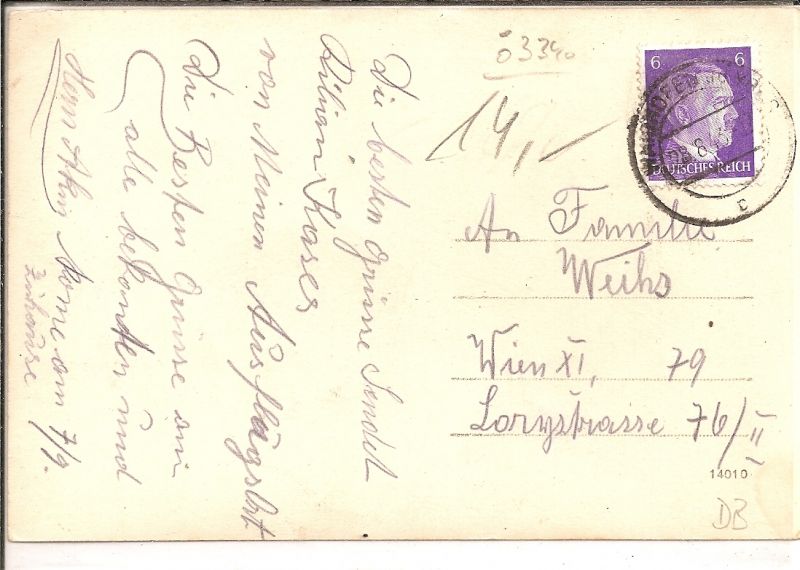 ö3340
14,-
6 6
DEUTSCHES REICH
Die besten Grüsse Sendet
Kilian Kaser
von Meinen Ausflugsort
die Besten Grüsse an
alle bekanten und
Herrn
Kome am 7/9.
zuhause
An Familie
Weihs
Wien XI, 79
Lorystrasse 76/II
14010
DB